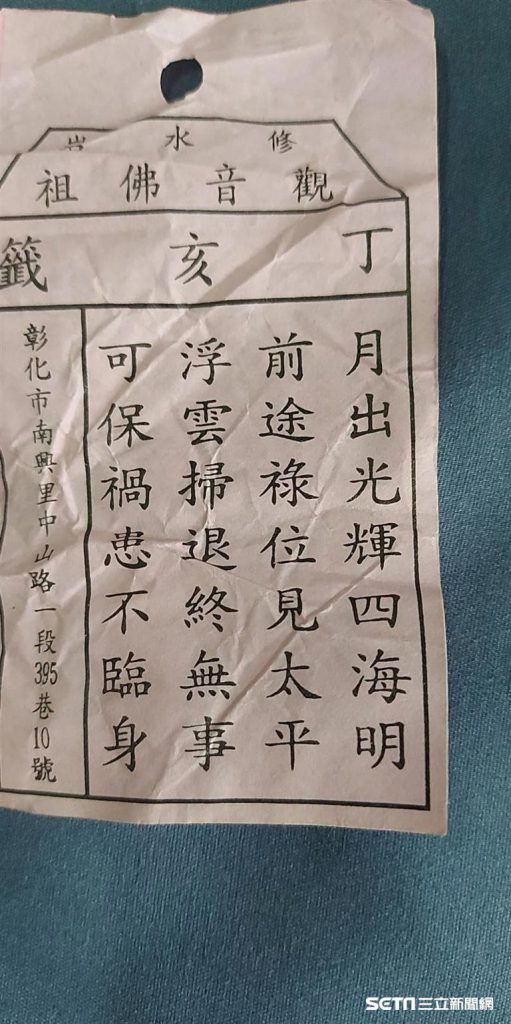 修水岩
觀音佛祖
丁亥籤
月出光輝四海明
前途祿位見太平
浮雲掃退終無事
可保禍患不臨身
彰化市南興里中山路一段395巷10號
SETN三立新聞網